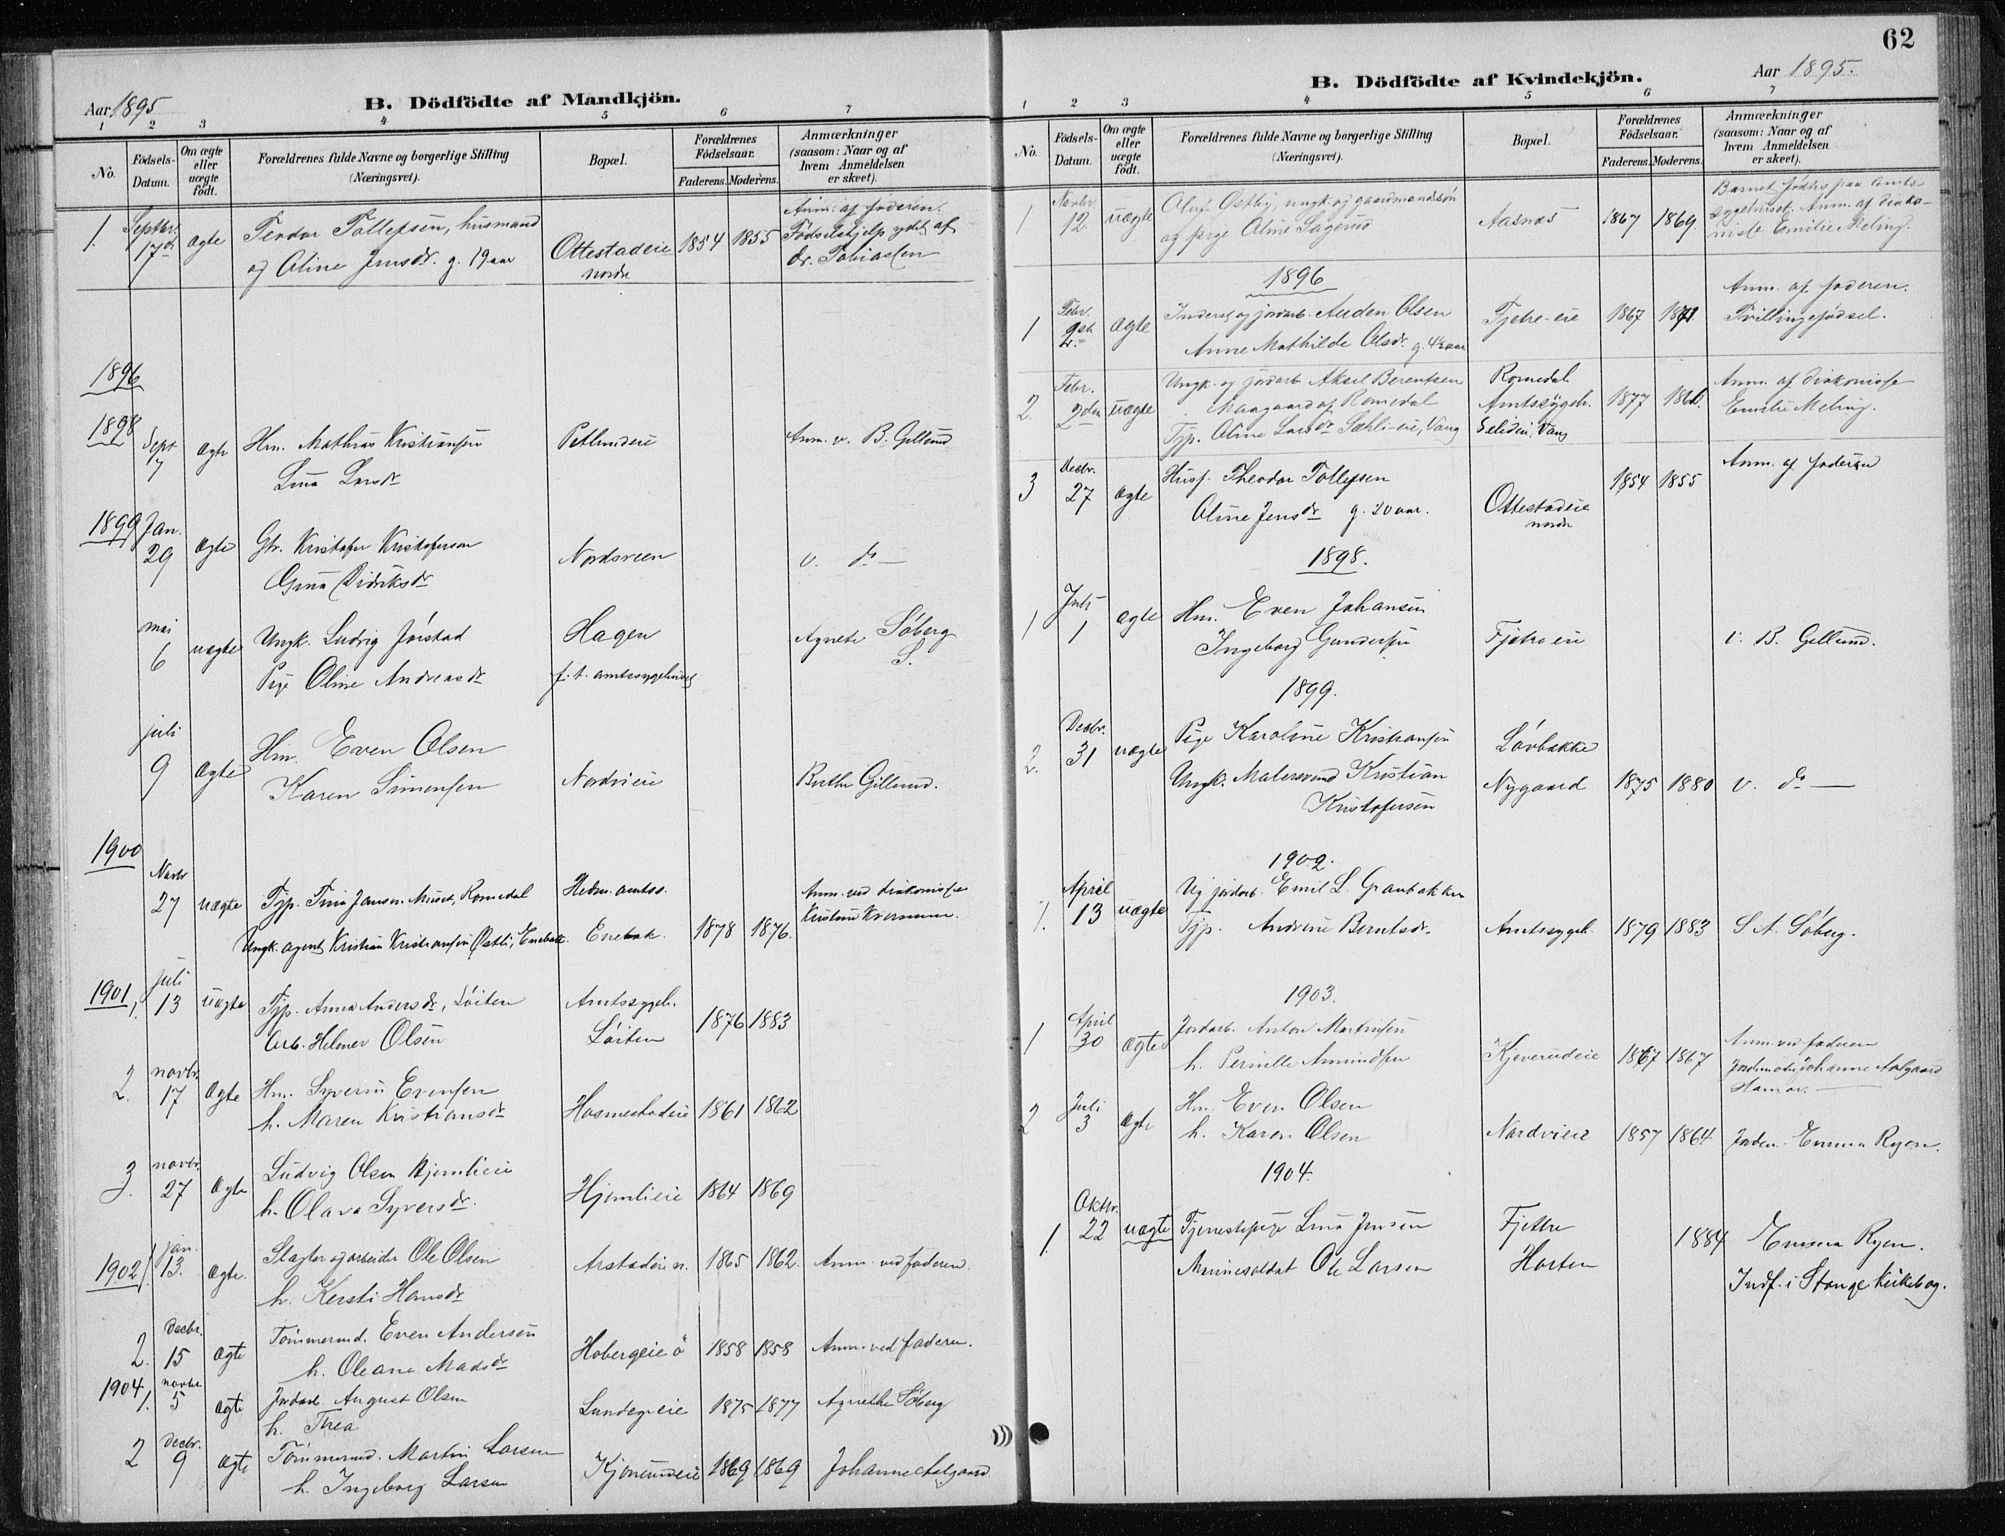 62
Aar 1895
B. Dödfödte af Mandkjön.
1 2 3 4 5 6 7
No.
Födsels-Datum.
Om ægte eller uægte födt.
Forældrenes fulde Navne og borgerlige Stilling
(Næringsvei).
Bopæl.
Forældrenes Födselsaar.
Faderens. Moderens.
Anmærkninger
(saasom: Naar og af
hvem Anmeldelsen
er skeet).
1. Septbr. 17de ægte Teodor Tollefsen, husmand
og Oline Jensdr. g. 19 aar
Ottestadeie nordre 1854 1855
Anm. af faderen.
Fødselshjelp ydet af
dr. Tobiassen
1896
1898
Sept 7 ægte Hm. Mathias Kristiansen
Lina Larsdr
Anm. v. B. Gillund
1899 Jan. 29 ægte Gbr. Kristofer Kristofersen
Gina Didriksdr
Nordsveen
v. do —
mai 6 uægte Ungk. Ludvig Jørstad
Pige Oline Andreasdr
Hagen
f. t. amtssygehuset
Agnete Søberg
S.
juli 9 ægte Hm. Even Olsen
Karen Simensen
Nordvieie
Berthe Gillund.
1900
Novbr 27 uægte Tjp. Tina Jansen, Romedal
Ungk. agent Kristian Kristiansen Østli, Enebak.
Hedm. amtss.
Enebak. 1878 1876.
Anm. ved diakonisse
Kristine
1901 1. juli 13 uægte Tjp. Anna Andersdr, Löiten
Arb. Helmer Olsen
Amtssygeh.
Löiten 1876 1883
2. novbr. 17 ægte Hm. Syverin Evensen
h. Maren Kristiansdr
Hosmestadeie 1861 1862
3. novbr. 27 ægte Ludvig Olsen Hjemlieie
h. Olava Syversdr.
Hjemlieie 1864 1869
1902 1. jan. 13. ægte. Slagter og arbeider Ole Olsen
h. Kersti Hansdr
Arstadeie n. 1865 1862. Anm. ved faderen.
2. Decbr. 15 ægte Tömmermd. Even Andersen
h. Oleane Madsdr
Hobergeie ö 1858 1858 Anm. ved faderen.
1904 1. novbr 5 ægte Jordarb. August Olsen
h. Thea
Lundegeie 1875 1877 Agnethe Söberg
2 Decbr. 9 ægte Tömmermd. Martin Larsen
h. Ingeborg Larsen
1869 1869 Johanne Aalgaard
Aar 1895.
B. Dödfödte af Kvindekjön.
1 2 3 4 5 6 7
No.
Födsels-Datum.
Om ægte eller uægte födt.
Forældrenes fulde Navne og borgerlige Stilling
(Næringsvei).
Bopæl.
Forældrenes Födselsaar.
Faderens. Moderens.
Anmærkninger
(saasom: Naar og af
hvem Anmeldelsen
er skeet).
1 Novbr 12. uægte Oluf Østby, ungk. og gaardmandssøn
og pige Oline Sagerud
Aasnæs 1867 1869.
Barnet fødtes paa Amts-
sygehuset. Anm. af diako-
nisse Emilie Meling.
1896
1 Febr. 2den ægte Inderst og jordarb. Auden Olsen
Anne Mathilde Olsdr. g. 4½ aar
Fjetre-eie 1867 1871
Anm. af faderen.
Tvillingefødsel.
2. Febr. 2den uægte Ungk. og jordarb Aksel Berentsen
Maagaard af Romedal
Tjp. Oline Larsdr Sæhli-eie, Vang
Romedal
Amtssygeh.
Vang
1877
Anm. af diakonisse
Emilie Meling.
3 Decbr. 27 ægte Husf. Theodor Tollefsen
Oline Jensdr g. 20 aar.
Ottestadeie nordr 1854 1855 Anm. af faderen
1898.
1 Juli 1 ægte Hm. Even Johansen
Ingeborg Gundersen
Fjetre eie
v. B. Gillund.
1899.
2. Decbr. 31 uægte Pige Karoline Kristiansen
Ungk. Malersvend Kristian
Kristofersen
Lövbakke
Nygaard 1875 1880 v. do —
1902.
1. April 13 uægte Ug jordarb. Emil L. Granbakken
Tjp. Andrine Berntsdr.
Amtssygeh. 1879 1883 S. A. Söberg.
1903.
1 April 30 ægte Jordarb. Anton Martinsen
h. Pernille Amundsen
Kjeverudeie 1867 1867
Anm. ved faderen
Jordmoder Johanne Aalgaard
Hamar. —
2 Juli 3 ægte Hm. Even Olsen
h. Karen Olsen
Nordvieie 1857 1864 Jordm. Emma Ryen.
1904.
1. Oktbr. 22 uægte Tjenestepige Lina Jensen
Marinesoldat Ole Larsen
Fjettre
Horten
1884 Emma Ryen.
Indf. i Stange kirkebog.